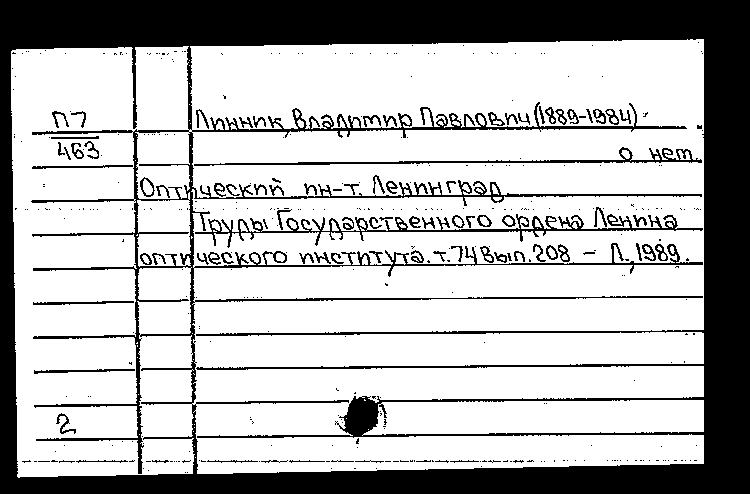 П7 Линник, Владимир Павлович (1889-1984)
463 о нем.
Оптический ин-т. Ленинград.
Труды Государственного ордена Ленина
оптического института. т. 74 вып. 208 - Л., 1989.
2